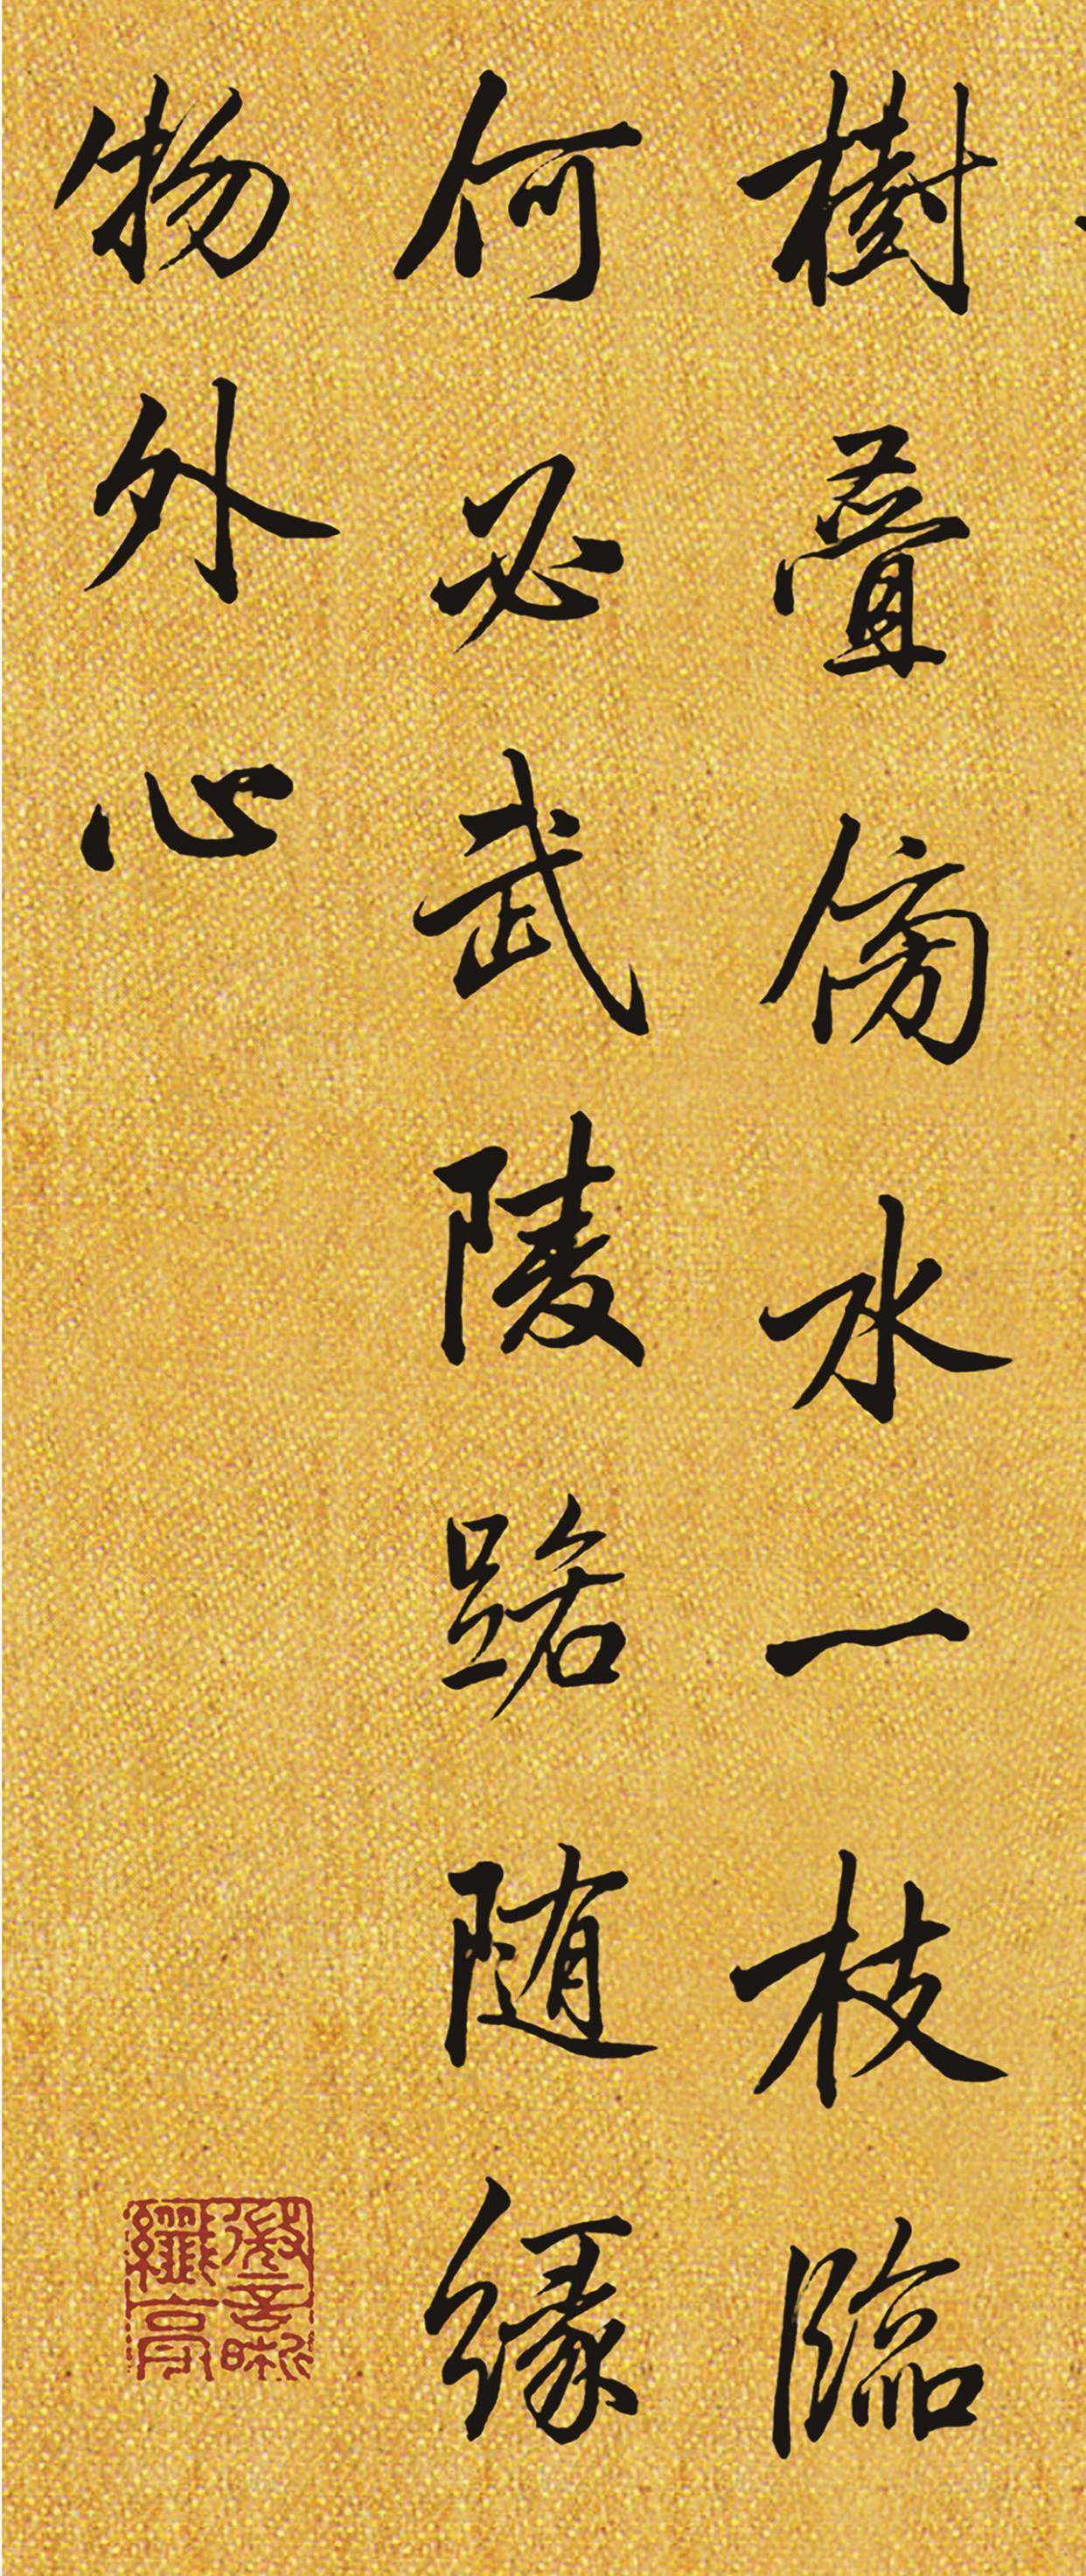 樹疊傍水一枝臨
何必武陵踞随縁
物外心